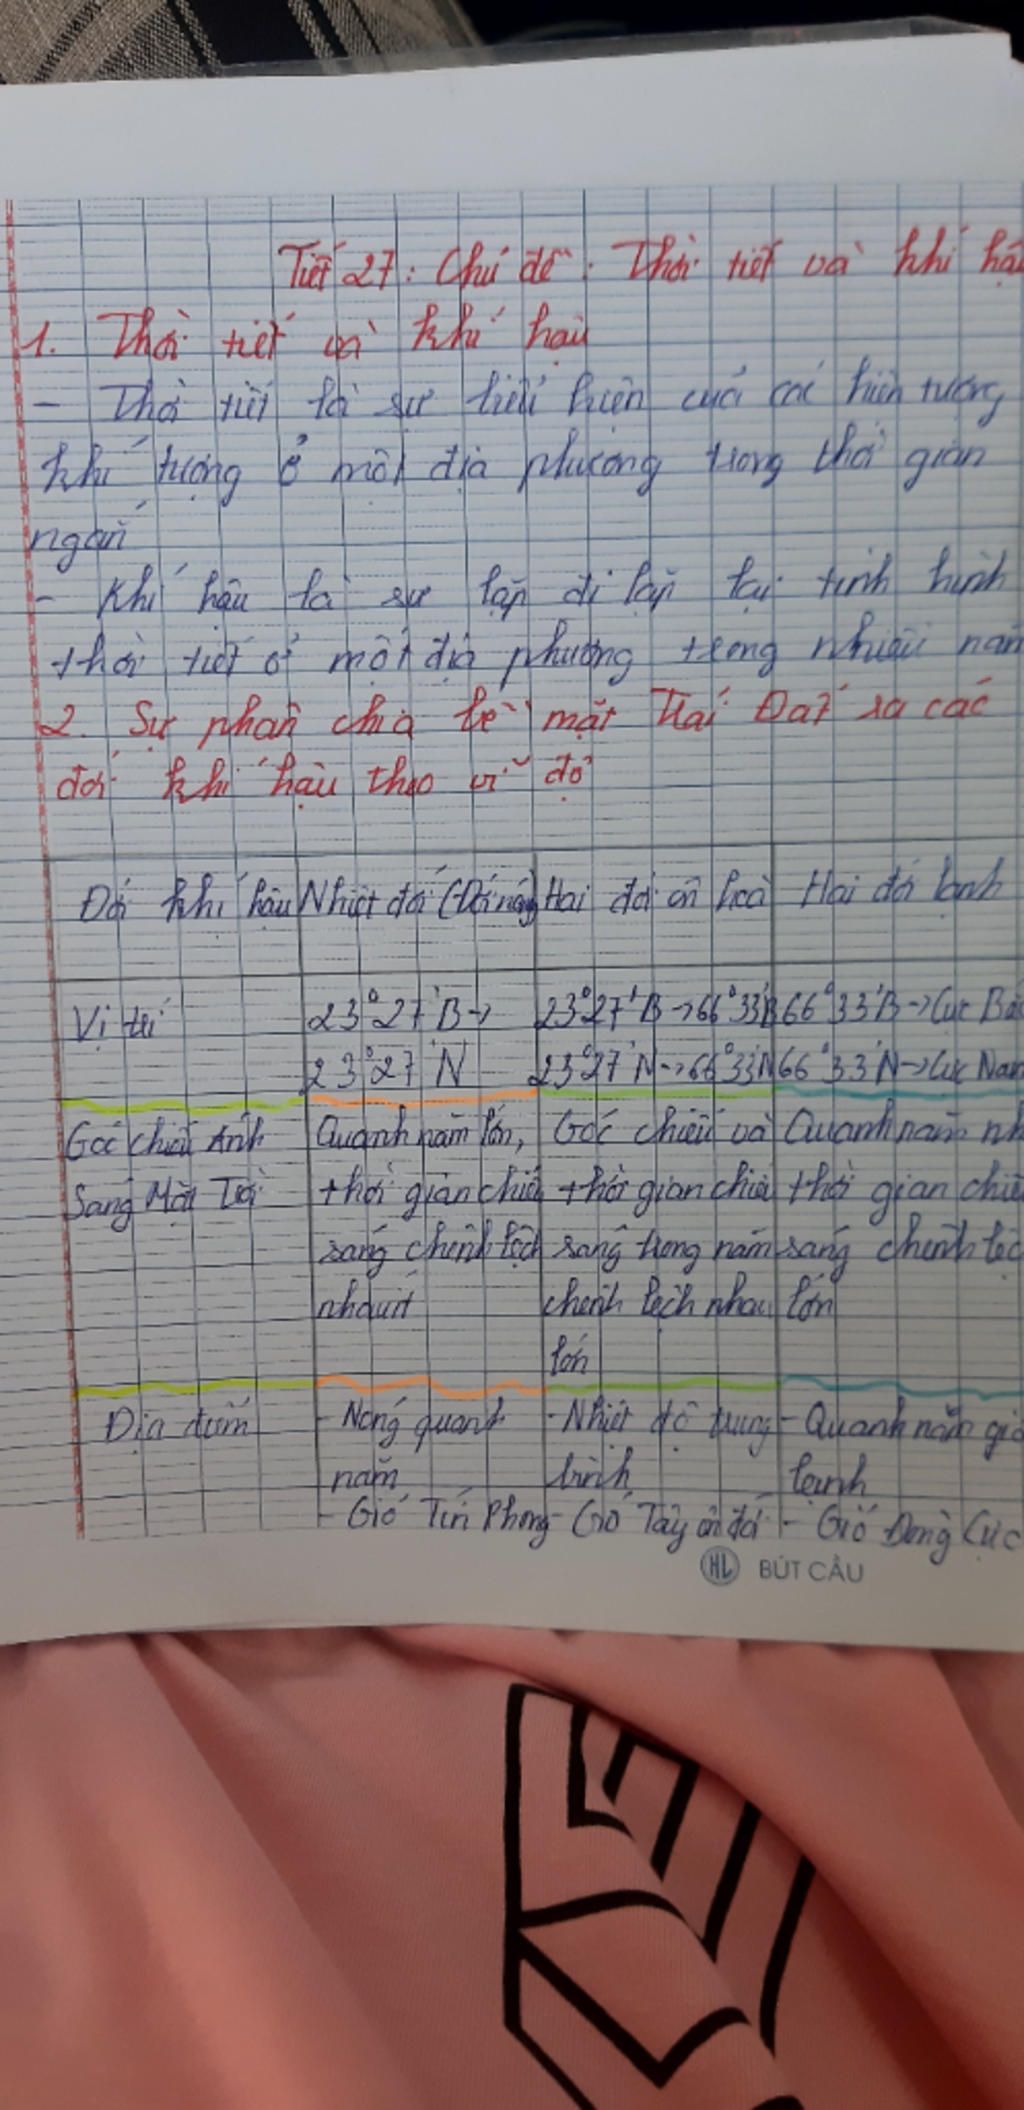 Tiết 27: Chủ đề: Thời tiết và khí hậ
1. Thời tiết và khí hậu
- Thời tiết là sự biểu hiện của các hiện tượng
khí tượng ở một địa phương trong thời gian
ngắn
- Khí hậu là sự lặp đi lặp lại tình hình
thời tiết ở một địa phương trong nhiều năm
2. Sự phân chia bề mặt Trái Đất ra các
đới khí hậu theo vĩ độ
Đới khí hậu Nhiệt đới (Đới nóng) Hai đới ôn hoà Hai đới lạnh
Vị trí 23°27'B-> 23°27'B->66°33'B 66°33'B->Cực Bắ
23°27'N 23°27'N->66°33'N 66°33'N->Cực Nam
Góc chiếu Ánh Quanh năm lớn, Góc chiếu và Quanh năm nh
Sáng Mặt Trời thời gian chiếu thời gian chiếu thời gian chiế
sáng chênh lệch sáng trong năm sáng chênh lệc
nhau ít chênh lệch nhau lớn
lớn
Đặc điểm - Nóng quanh - Nhiệt độ trung - Quanh năm giá
năm bình lạnh
- Gió Tín Phong - Gió Tây ôn đới - Gió Đông Cực
HL BÚT CẦU